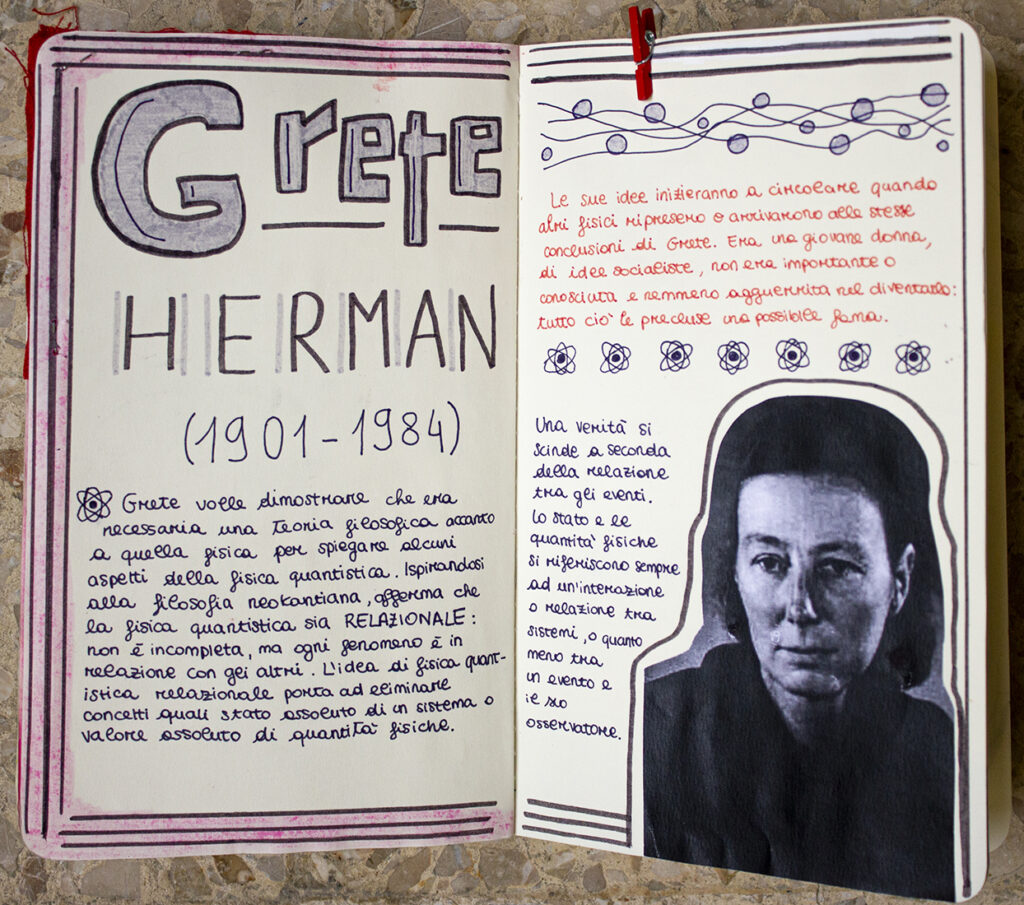 Grete
HERMAN
(1901-1984)
Grete volle dimostrare che era
necessaria una teoria filosofica accanto
a quella fisica per spiegare alcuni
aspetti della fisica quantistica. Ispirandosi
alla filosofia neokantiana, afferma che
la fisica quantistica sia RELAZIONALE:
non è incompleta, ma ogni fenomeno è in
relazione con gei altri. L'idea di fisica quant-
istica relazionale porta ad eliminare
concetti quali stato assoluto di un sistema o
valore assoluto di quantità fisiche.
Le sue idee inizieranno a circolare quando
altri fisici ripresero o arrivarono alle stesse
conclusioni di Grete. Era una giovane donna,
di idee socialiste, non era importante o
conosciuta e nemmeno agguerrita nel diventarlo:
tutto ciò le precluse una possibile fama.
Una verità si
scinde a seconda
della relazione
tra gli eventi.
Lo stato e le
quantità fisiche
si riferiscono sempre
ad un'interazione
o relazione tra
sistemi, o quanto
meno tra
un evento e
il suo
osservatore.